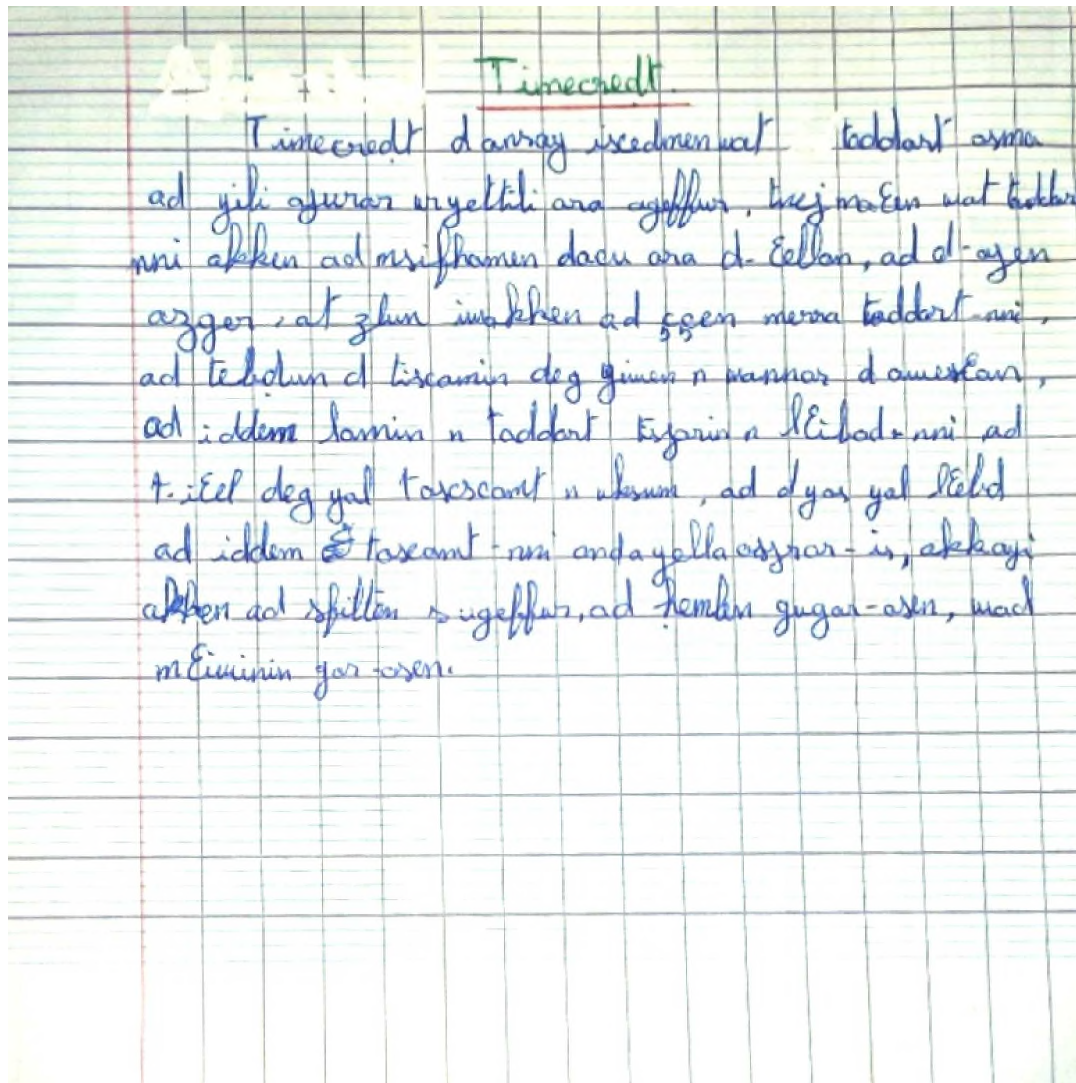 Timecredt
Timecredt d ansay iscedmen wat taddart asma
ad yili aɣurar ur yettili ara ageffur, tnejmaɛen wat taddar
nni akken ad msifhamen dacu ara d-ɛellan, ad d-aɣen
azger, at zlun iwakken ad ççen merra taddart-nni,
ad tebdun d tiscamin deg yimen n wannar d amesɛan,
ad iddem lamin n taddart n lɛibad-nni ad
t-iɛel deg yal tascamt n uksum, ad dyas yal lɛebd
ad iddem tascamt-nni anda yella
akken ad ugeffur, ad gugar-asen, wad
gar-asen.